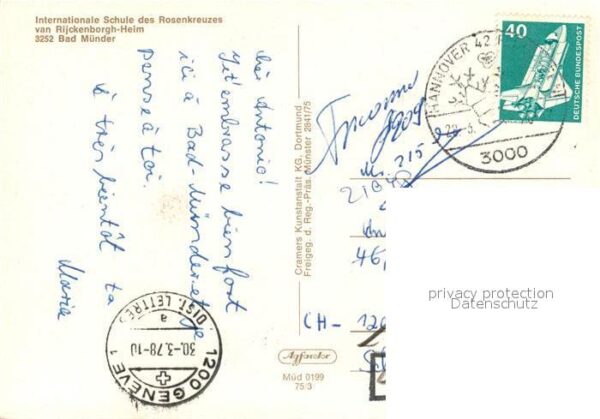 Internationale Schule des Rosenkreuzes
van Rijckenborgh-Heim
3252 Bad Münder
Antonio!
Je t'embrasse bien fort
ici à Bad-Münder et je
pense à toi.
à très bientôt ta
Maria
Cramers Kunstanstalt KG. Dortmund
Freigeg. d. Reg.-Präs. Münster 2841/75
HANNOVER
3000
40
DEUTSCHE BUNDESPOST
46,
CH-
privacy protection
Datenschutz
DIST. LETTRES
a
30.-3.78-10
1200 GENÈVE 1
Müd 0199
75/3